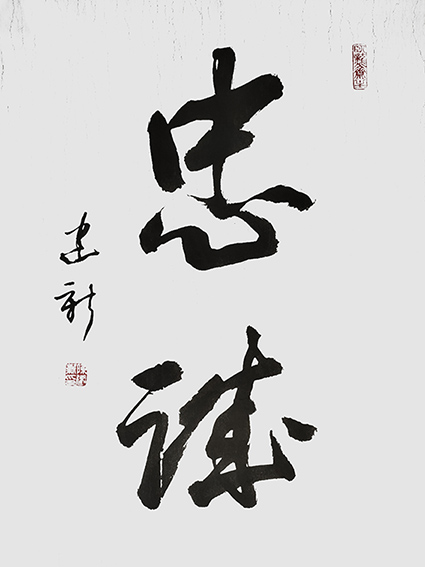 忠诚
建新